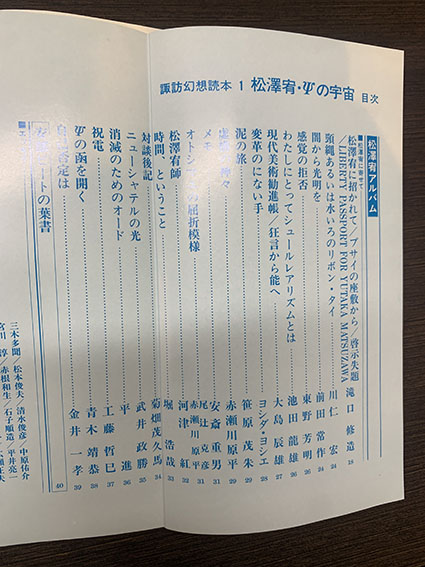 諏訪幻想読本 1 松澤宥・Ψの宇宙 目次
松澤宥アルバム
■松澤宥に寄せて
松澤宥に招かれて/プサイの座敷から/啓示失題
/LIBERTY PASSPORT FOR YUTAKA MATSUZAWA 滝口修造 18
頸縄あるいは水いろのリボン・タイ 川仁 宏 24
闇から光明を 前田常作 24
感覚の拒否 東野芳明 26
わたしにとってシュールレアリズムとは 池田龍雄 26
現代美術勧進帳/狂言から能へ 大島辰雄 28
変革のにない手 ヨシダ・ヨシエ 28
泥の旅 笹原茂朱 29
赤瀬川原平
メモ 安斎重男 31
オトシ の屈折模様 尾辻克彦 赤瀬川原平 31
松澤宥師 河津 紘 31
時間、ということ 堀 浩哉 33
対談後記 菊畑茂久馬 34
ニューシャテルの光 武井政勝 35
消滅のためのオード 平 進 36
祝電 工藤哲巳 37
Ψの函を開く 青木靖恭 38
自己否定は 金井一孝 39
アートの葉書 40
三木多聞 松本俊夫/清水俊彦/中原佑介
宮川 淳/赤根和生/石子順造/平井亮一